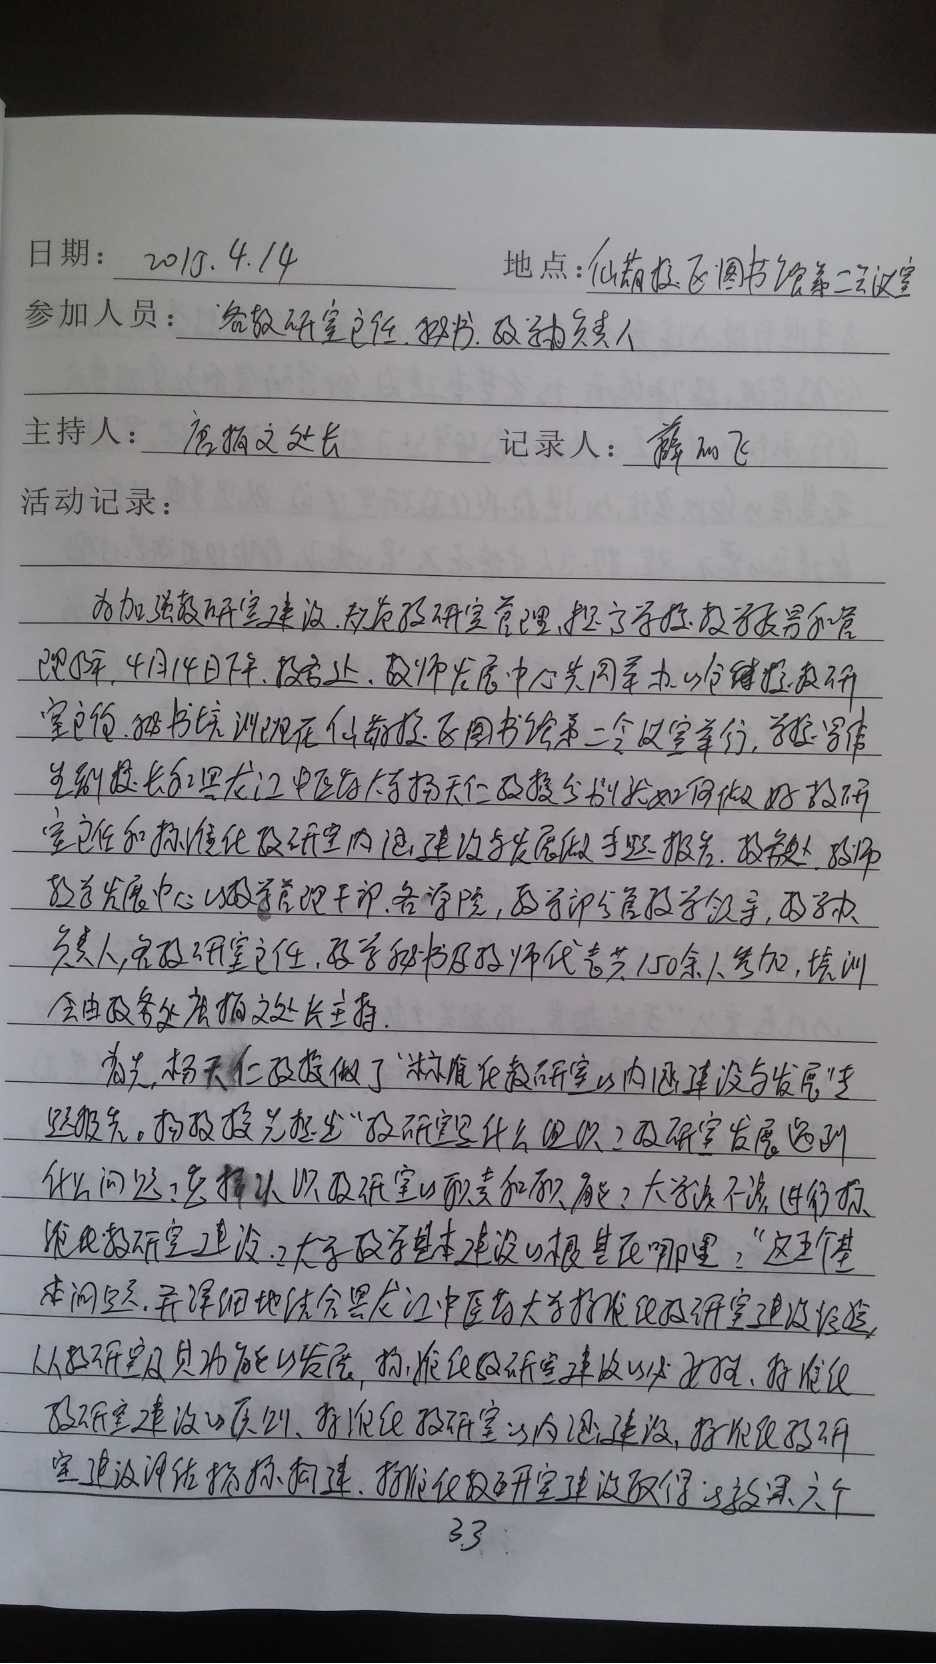 日期： 2015.4.14 地点：仙葫校区图书馆第二会议室
参加人员： 各教研室主任、秘书、教学负责人
主持人： 唐梅文处长 记录人： 薛丽飞
活动记录：
为加强教研室建设，规范教研室管理，提高学校教学质量和管
理水平，4月14日下午，教务处、教师发展中心共同举办的全校教研
室主任、秘书培训班在仙葫校区图书馆第二会议室举行，学校
副校长和黑龙江中医药大学杨天仁教授分别就如何做好教研
室主任和标准化教研室内涵建设与发展做专题报告。教务处、教师
教学发展中心的教学管理干部，各学院，教学部分管教学领导，教学办
负责人，各教研室主任，教学秘书及教师代表共150余人参加，培训
会由教务处唐梅文处长主持。
首先，杨天仁教授做了“标准化教研室的内涵建设与发展”专
题报告。杨教授先提出“教研室是什么组织？教研室发展遇到
什么问题？怎样认识教研室的职责和职能？大学该不该进行标
准化教研室建设？大学教学基本建设的根基在哪里？”这五个基
本问题，并详细地结合黑龙江中医药大学标准化教研室建设经验，
从教研室及其功能的发展，标准化教研室建设的必要性、标准化
教研室建设的原则、标准化教研室的内涵建设，标准化教研
室建设评估指标构建、标准化教研室建设取得的效果六个
33